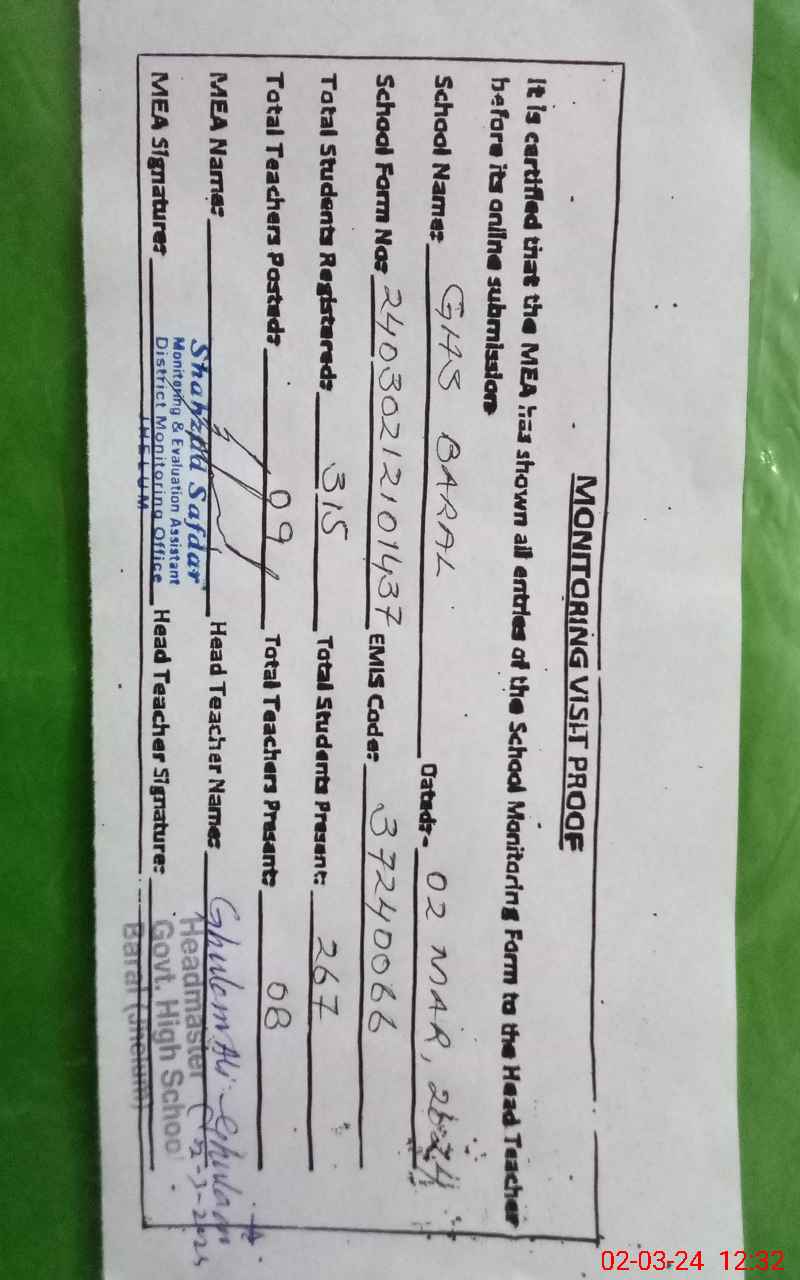 MONITORING VISIT PROOF
It is certified that the MEA has shown all entries of the School Monitoring Form to the Head Teacher
before its online submission
School Name: GHS BARAL Dated:- 02 MAR, 2024
School Form No: 24030212101437 EMIS Code: 37240066
Total Students Registered: 315 Total Students Present: 267
Total Teachers Posted: 09 Total Teachers Present: 08
MEA Name: Shahzad Safdar Head Teacher Name: Ghulam Ali
Monitoring & Evaluation Assistant
MEA Signature: District Monitoring Office Head Teacher Signature:
JHELUM
Headmaster
Govt. High School
Baral (Jhelum)
02-03-24 12:32